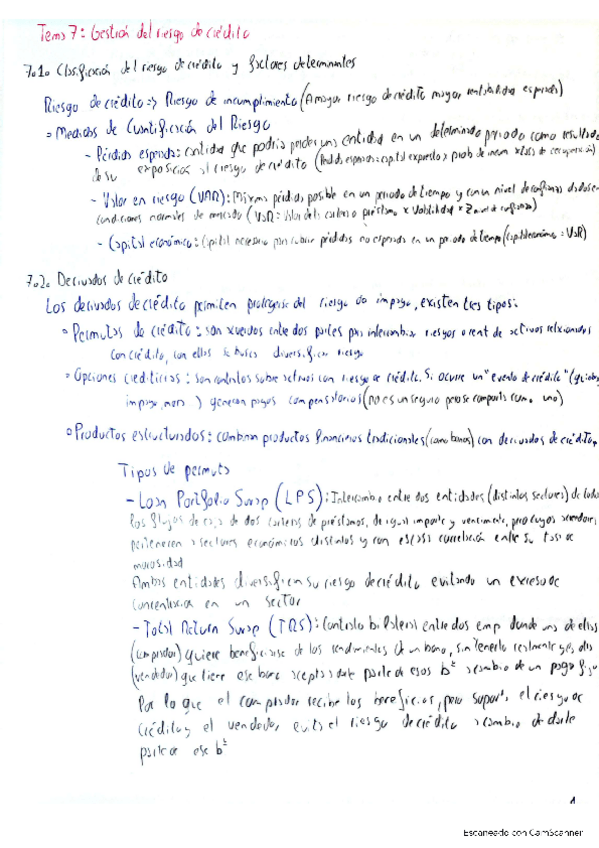 Tema 7: Gestión del riesgo de crédito
7.1. Clasificación del riesgo de crédito y factores determinantes
Riesgo de crédito => Riesgo de incumplimiento (A mayor riesgo de crédito mayor rentabilidad esperada)
Medidas de Cuantificación del Riesgo
- Pérdida esperada: cantidad que podría perder una entidad en un determinado periodo como resultado
de su exposición al riesgo de crédito (Pérdida esperada: capital expuesto x prob de incum x tasa de recuperación)
- Valor en riesgo (VAR): Máxima pérdida posible en un periodo de tiempo y con un nivel de confianza dado en
condiciones normales de mercado (VaR: Valor de la cartera o préstamo x Volatilidad x Z nivel de confianza)
- Capital económico: Capital necesario para cubrir pérdidas no esperadas en un periodo de tiempo (capital económico = VaR)
7.2. Derivados de crédito
Los derivados de crédito permiten protegerse del riesgo de impago, existen tres tipos:
Permutas de crédito: son acuerdos entre dos partes para intercambiar riesgos o rent de activos relacionados
con crédito, con ellos se busca diversificar riesgo
Opciones crediticias: son contratos sobre activos con riesgo de crédito. Si ocurre un "evento de crédito" (quiebra,
impago, mora) generan pagos compensatorios (no es un seguro pero se comporta como uno)
Productos estructurados: combinan productos financieros tradicionales (como bonos) con derivados de crédito.
Tipos de permuta
- Loan Portfolio Swap (LPS): Intercambio entre dos entidades (distintos sectores) de todos
los flujos de caja de dos carteras de préstamos, de igual importe y vencimiento, pero cuyos acreedores
pertenecen a sectores económicos distintos y con escasa correlación entre su tasa de
morosidad
Ambas entidades diversifican su riesgo de crédito evitando un exceso de
concentración en un sector
- Total Return Swap (TRS): Contrato bilateral entre dos emp donde una de ellas
(comprador) quiere beneficiarse de los rendimientos de un bono, sin tenerlo realmente y la otra
(vendedor) que tiene ese bono acepta darle parte de esos bº a cambio de un pago fijo
Por lo que el comprador recibe los beneficios, pero soporta el riesgo de
crédito y el vendedor evita el riesgo de crédito a cambio de darle
parte de ese bº
1
Escaneado con CamScanner